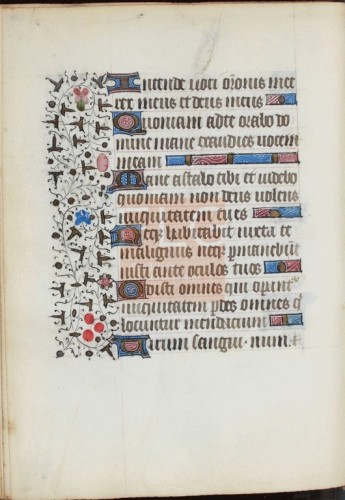 Intende voci orōnis mee
rex meus et deus meus
Quoniam ad te orabo do
mine mane exaudies vocem
meam
Mane astabo tibi et videbo
quoniam non deus volens
iniquitatem tu es
Neq habitabit iuxta te
malignus neq permanebūt
iusti ante oculos tuos
Odisti omnes qui operāt
iniquitatem perdes omnes q
locuntur mendacium
Uirum sangui num